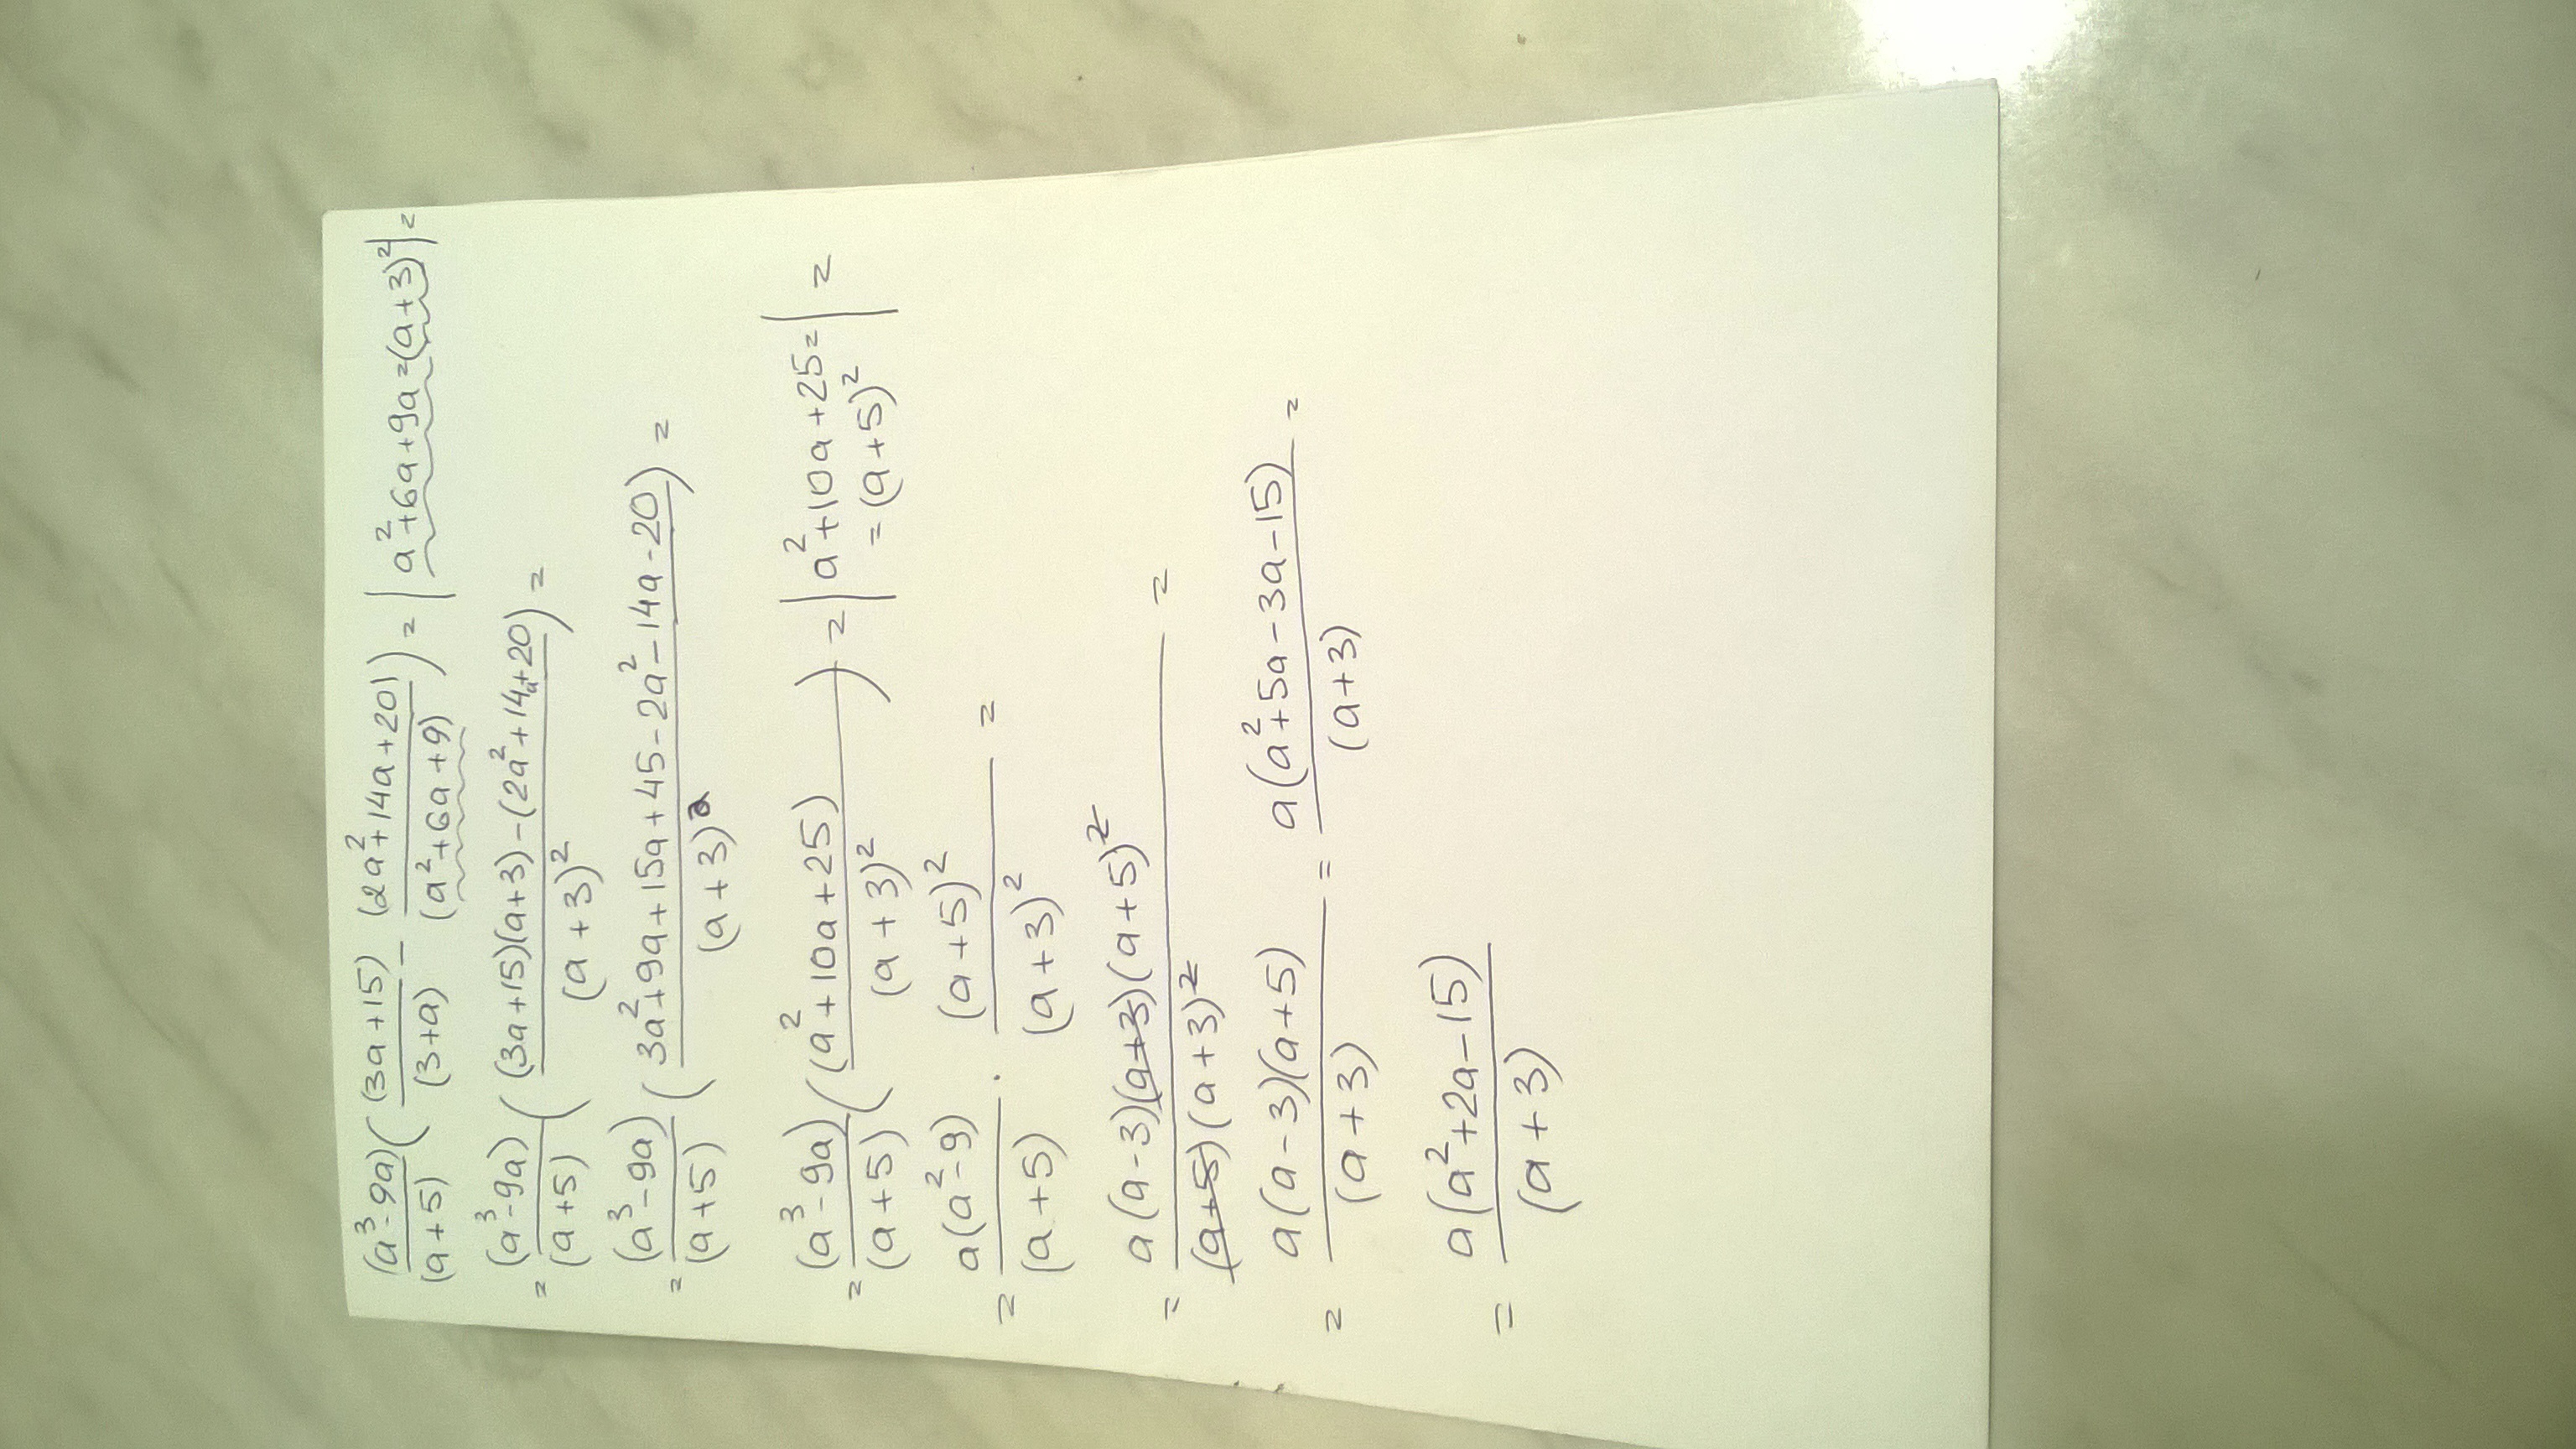 (a³-9a)/(a+5) ( (3a+15)/(3+a) - (2a²+14a+20)/(a²+6a+9) ) = | a²+6a+9a=(a+3)² | =
= (a³-9a)/(a+5) ( ((3a+15)(a+3)-(2a²+14a+20))/(a+3)² ) =
= (a³-9a)/(a+5) ( (3a²+9a+15a+45-2a²-14a-20)/(a+3)² ) =
= (a³-9a)/(a+5) ( (a²+10a+25)/(a+3)² ) = | a²+10a+25= = (a+5)² | =
= a(a²-9)/(a+5) · (a+5)²/(a+3)² =
= a(a-3)(a+3)(a+5)²/(a+5)(a+3)² =
= a(a-3)(a+5)/(a+3) = a(a²+5a-3a-15)/(a+3) =
= a(a²+2a-15)/(a+3)